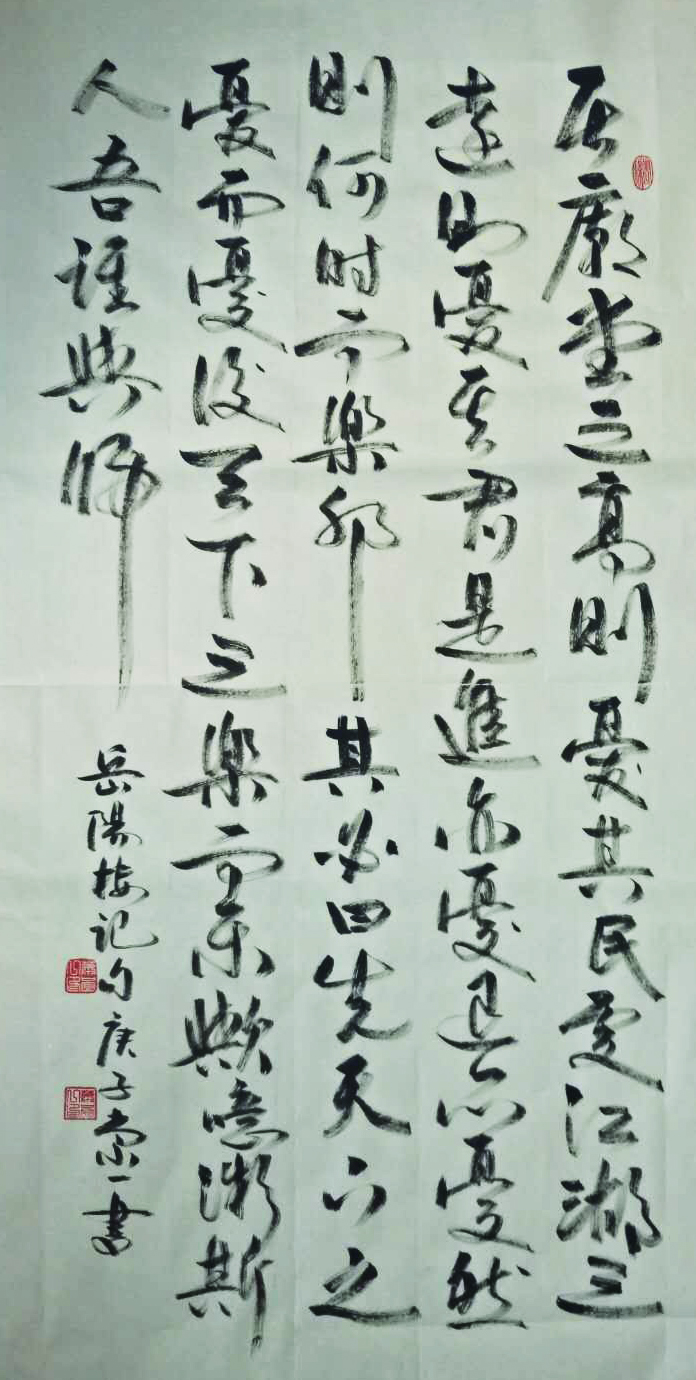 居廟堂之高則憂其民處江湖之
遠則憂其君是進亦憂退亦憂然
則何时而樂耶其必曰先天下之
憂而憂後天下之樂而乐歟噫微斯
人吾誰與歸
岳陽楼记句庚子一書